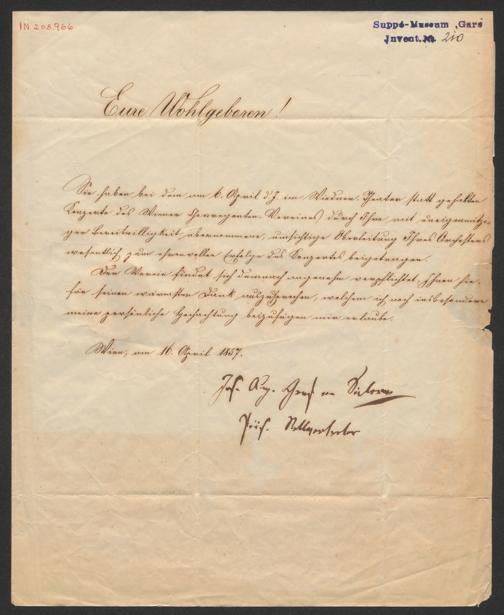 IN 208.966
Suppé-Museum, Gars
Invent.№ 210
Eure Wohlgeboren!
Sie haben bei dem am 6. April d. J. im Wiedner Theater statt gehabten
Konzerte des Wiener Chorregenten-Vereines durch Ihre mit uneigennützi-
ger Bereitwilligkeit übernommene, umsichtige Oberleitung Ihres Orchesters
wesentlich zum ehrenvollen Erfolge des Konzertes beigetragen.
Der Verein findet sich demnach angenehm verpflichtet, Ihnen hie-
für seinen wärmsten Dank auszusprechen, welchem ich noch insbesondere
meine persönliche Hochachtung beizufügen mir erlaube.
Wien, am 16. April 1857.
Jos. Aug.
Stellvertreter